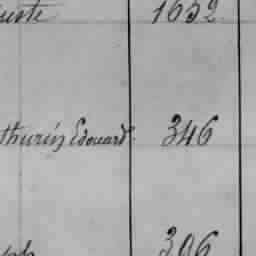 uste 1652
thurin Edouard 346
ph 306